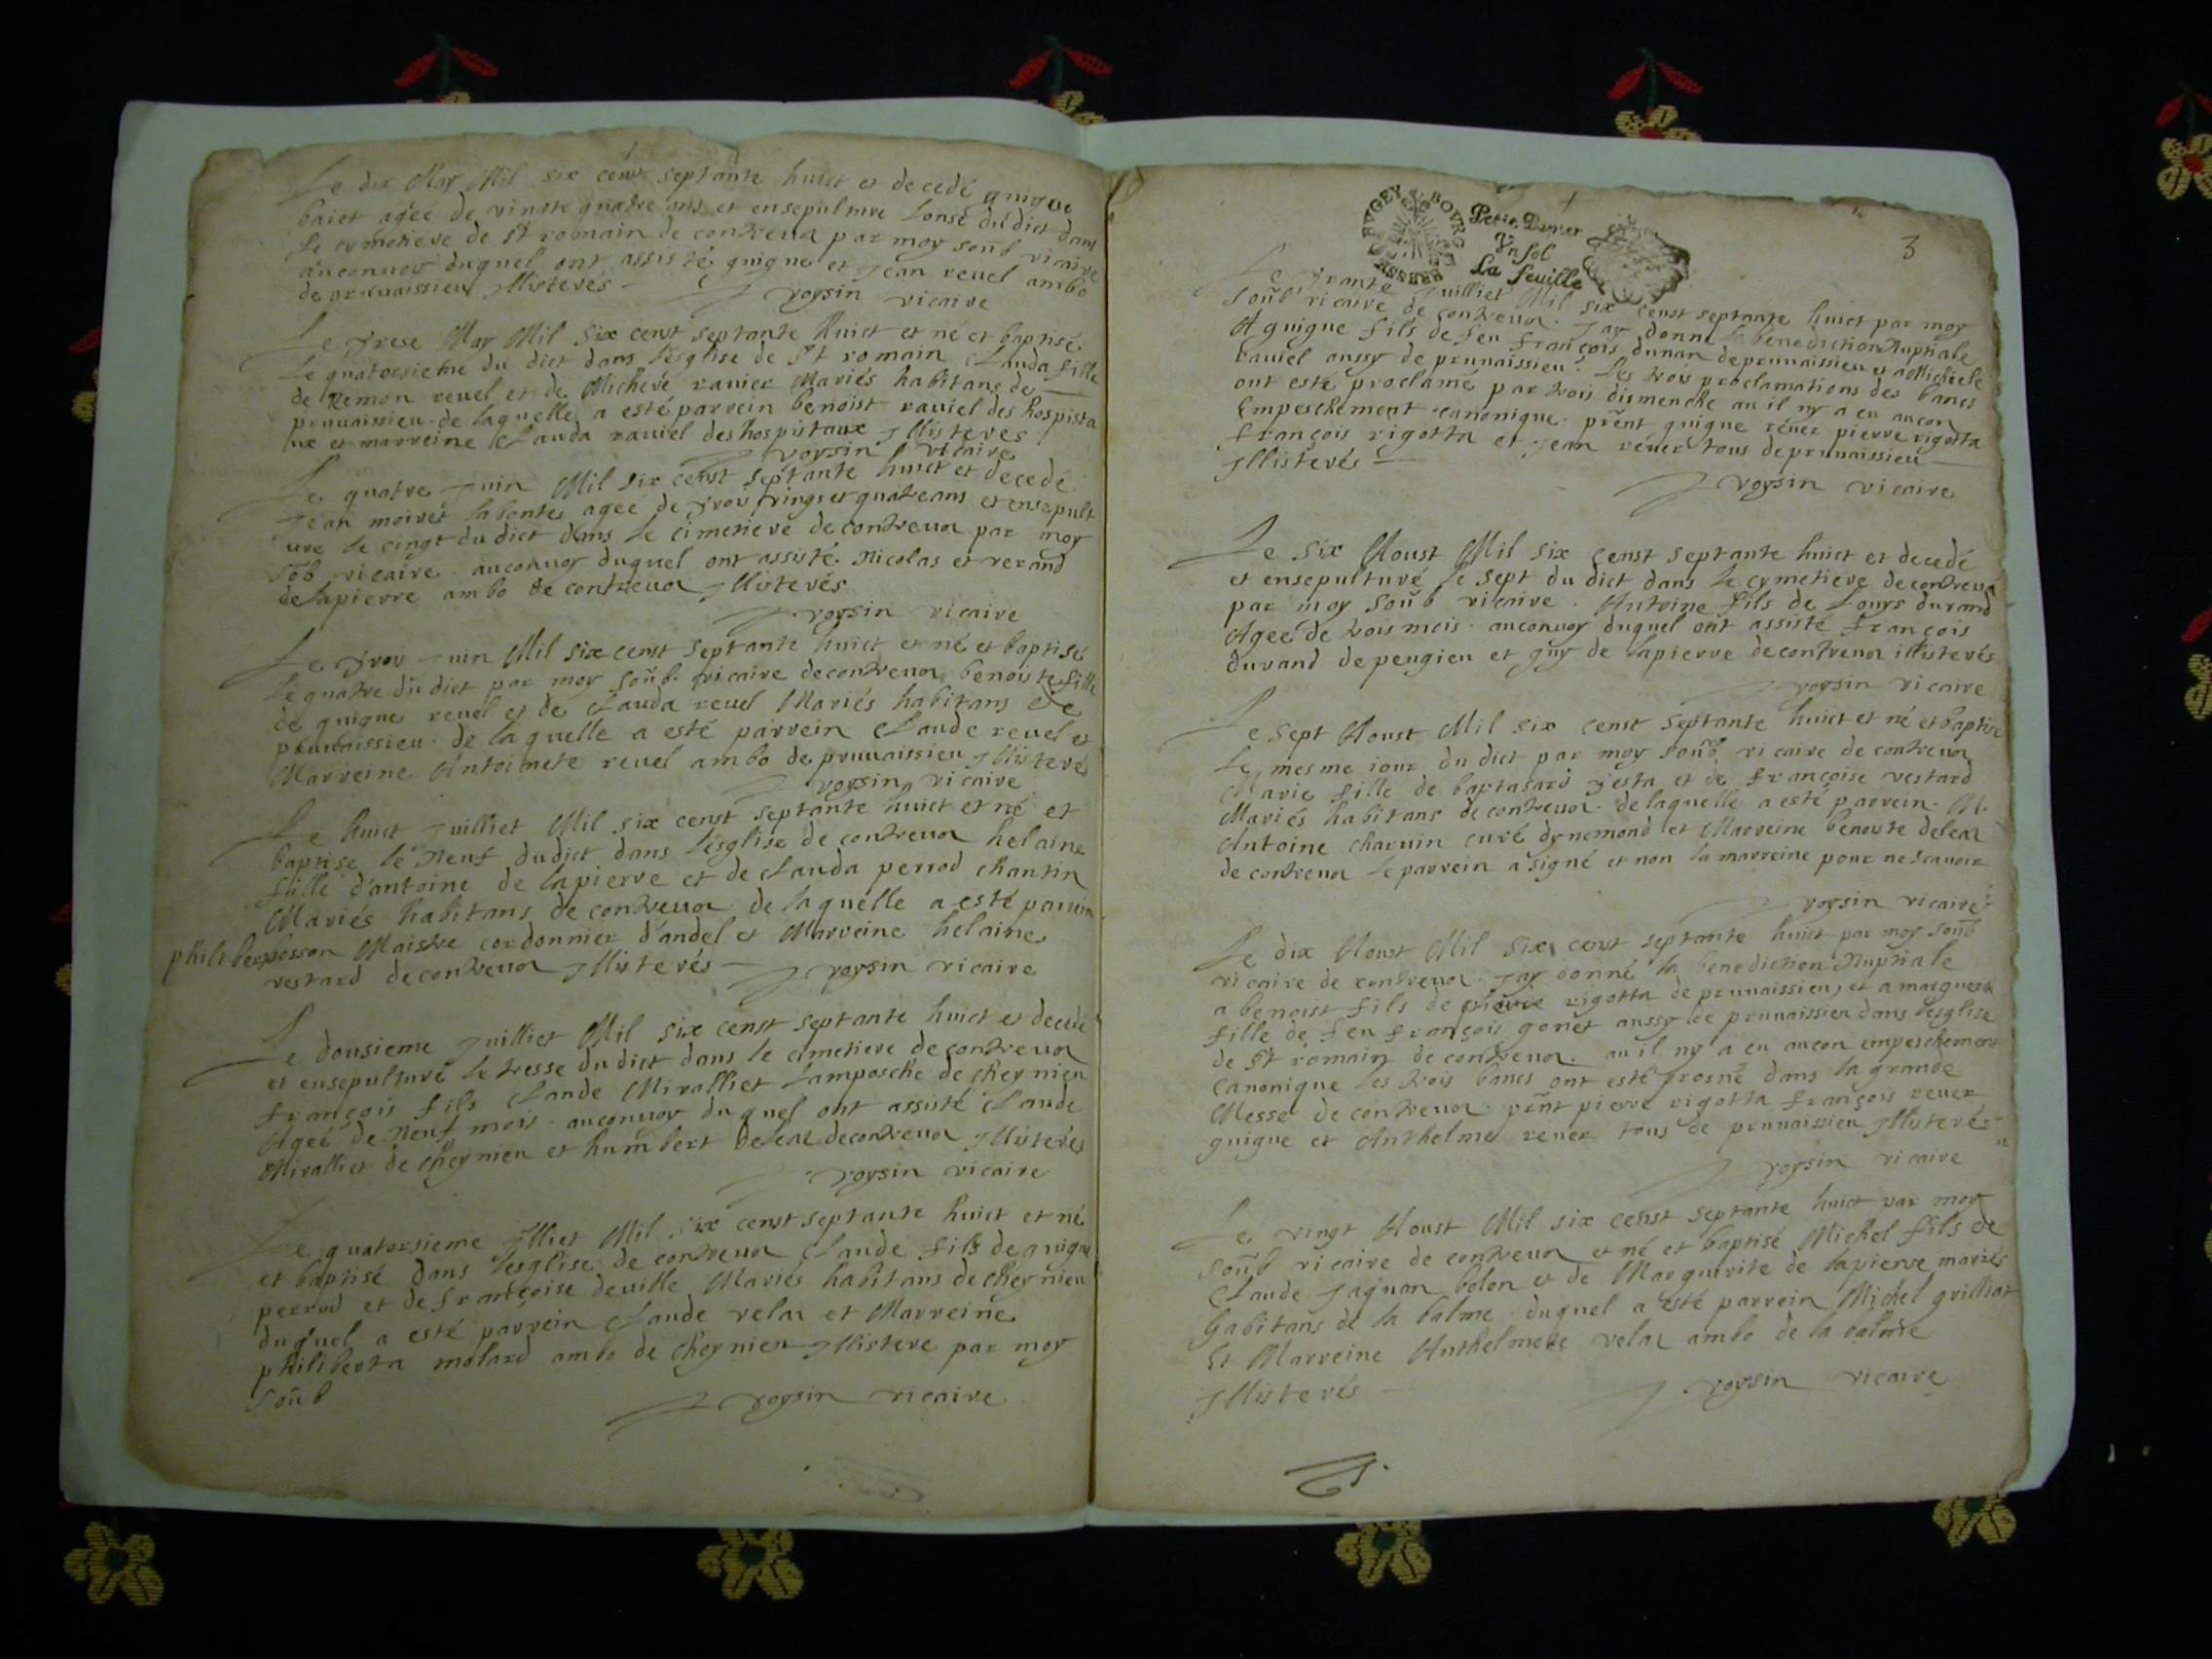 Le dix May Mil six cent septante huict et decedé guigue
baict agée de vingte quatre ans et ensepulture Lonse du dict dans
le cymetiere de st romain de contreuoz par moy soub vicaire
auconuoy duquel ont assisté guigue et Jean reuel ambo
de prunaissieu Jllisterés
voysin vicaire
Le trese May Mil six censt septante huict et né et baptisé
Le quatorsieme du dict dans l'esglise de st romain Clauda fille
de Remon reuel et de Micheré rauier Mariés habitans de
prunaissieu de laquelle a esté parrein benoist rauiel des hospista
ux et marreine Clauda rauiel des hospistaux Jllisteres
voysin vicaire
Le quatre Juin Mil six censt septante huict et decedé
Jean moiret labontes agee de troy vingt et quatre ans et ensepult
ure le cinqt du dict dans le cimetiere de contreuoz par moy
sob vicaire auconuoy duquel ont assisté Nicolas et verand
de lapierre ambo de contreuoz Jllisterés
voysin vicaire
Le troy Juin Mil six censt septante huict et né et baptisé
Le quatre du dict par moy soub vicaire de contreuoz benoiste fille
de guigue reuel et de Clauda reuel Mariés habitans de
prunaissieu de laquelle a esté parrein Claude reuel et
Marreine Antoinete reuel ambo de prunaissieu Jllisterés
voysin vicaire
Le huict Juilliet Mil six censt septante huict et né et
baptise le Neuf dudict dans l'esglise de contreuoz helaine
fille d'antoine de lapierre et de Clauda perrod chantin
Mariés habitans de contreuoz de laquelle a esté parrein
philibert posson Maistre cordonnier d'andel et Marreine helaine
vestard de contreuoz Jllisterés voysin vicaire
Le dousieme Juilliet Mil six censt septante huict et decedé
et ensepulturé le tresse du dict dans le cimetiere de contreuoz
françois fils Claude Miralliet Lamposche de cheynieu
Ageé de Neuf mois auconuoy duquel ont assisté Claude
Miralliet de cheynieu et humbert deleaz de contreuoz Jllisterés
voysin vicaire
Le quatorsieme Jlliet Mil six censt septante huict et né
et baptisé dans l'esglise de contreuoz Claude fils de guigue
perrod et de françoise deuille Mariés habitans de cheynieu
duquel a esté parrein Claude velaz et Marreine
philiberta molard ambo de cheynieu Jllistere par moy
soub
voysin vicaire
3
BVGEY BOVRG BRESSE
Petit Papier
Vn sol
La feuille
Le trante Juilliet Mil six censt septante huict par moy
soub vicaire de contreuoz Jay donné la benediction Nuptiale
A guigue fils de feu françois dunan de prunaissieu et a Michiele
rauiel aussy de prunaissieu Les trois proclamations des bancs
ont esté proclamé par trois dismenche au il ny a eu aucon
Empeschement canonique prent guigue réuer pierre rigotta
françois rigotta et Jean réuer tous de prunaissieu
Jllisterés
voysin vicaire
Le six Aoust Mil six censt septante huict et decedé
et ensepulturé le sept du dict dans le cymetiere de contreuoz
par moy soub vicaire Antoine fils de Louys durand
Ageé de trois mois auconuoy duquel ont assisté françois
durand de peugieu et guy de lapierre de contreuoz illisterés
voysin vicaire
Le sept Aoust Mil six censt septante huict et né et baptise
Le mesme iour du dict par moy soub vicaire de contreuoz
Marie fille de baptasard testa et de françoise vestard
Mariés habitans de contreuoz de laquelle a esté parrein M.
Antoine charuin curé dynemond et Marreine benoite deleaz
de contreuoz le parrein a signé et non la marreine pour ne scauoir
voysin vicaire
Le dix Aoust Mil six censt septante huict par moy soub
vicaire de contreuoz Jay donné la benediction Nuptiale
a benoist fils de pierre rigotta de prunaissieu, et a marguerite
fille de feu françois gonet aussy de prunaissieu dans l'esglise
de st romain de contreuoz au il ny a eu aucon empeschement
canonique les trois bancs ont esté prosné dans la grande
Messe de contreuoz prent pierre rigotta françois reuer
guigue et Anthelme reuer tous de prunaissieu Jllisterés
voysin vicaire
Le vingt Aoust Mil six censt septante huict par moy
soub vicaire de contreuoz et né et baptisé Michel fils de
Claude Jaquan bolon et de Marguerite de lapierre mariés
habitans de la balme duquel a esté parrein Michel grilliat
Et Marreine Anthelmete velaz ambo de la balme
Jllisterés voysin vicaire